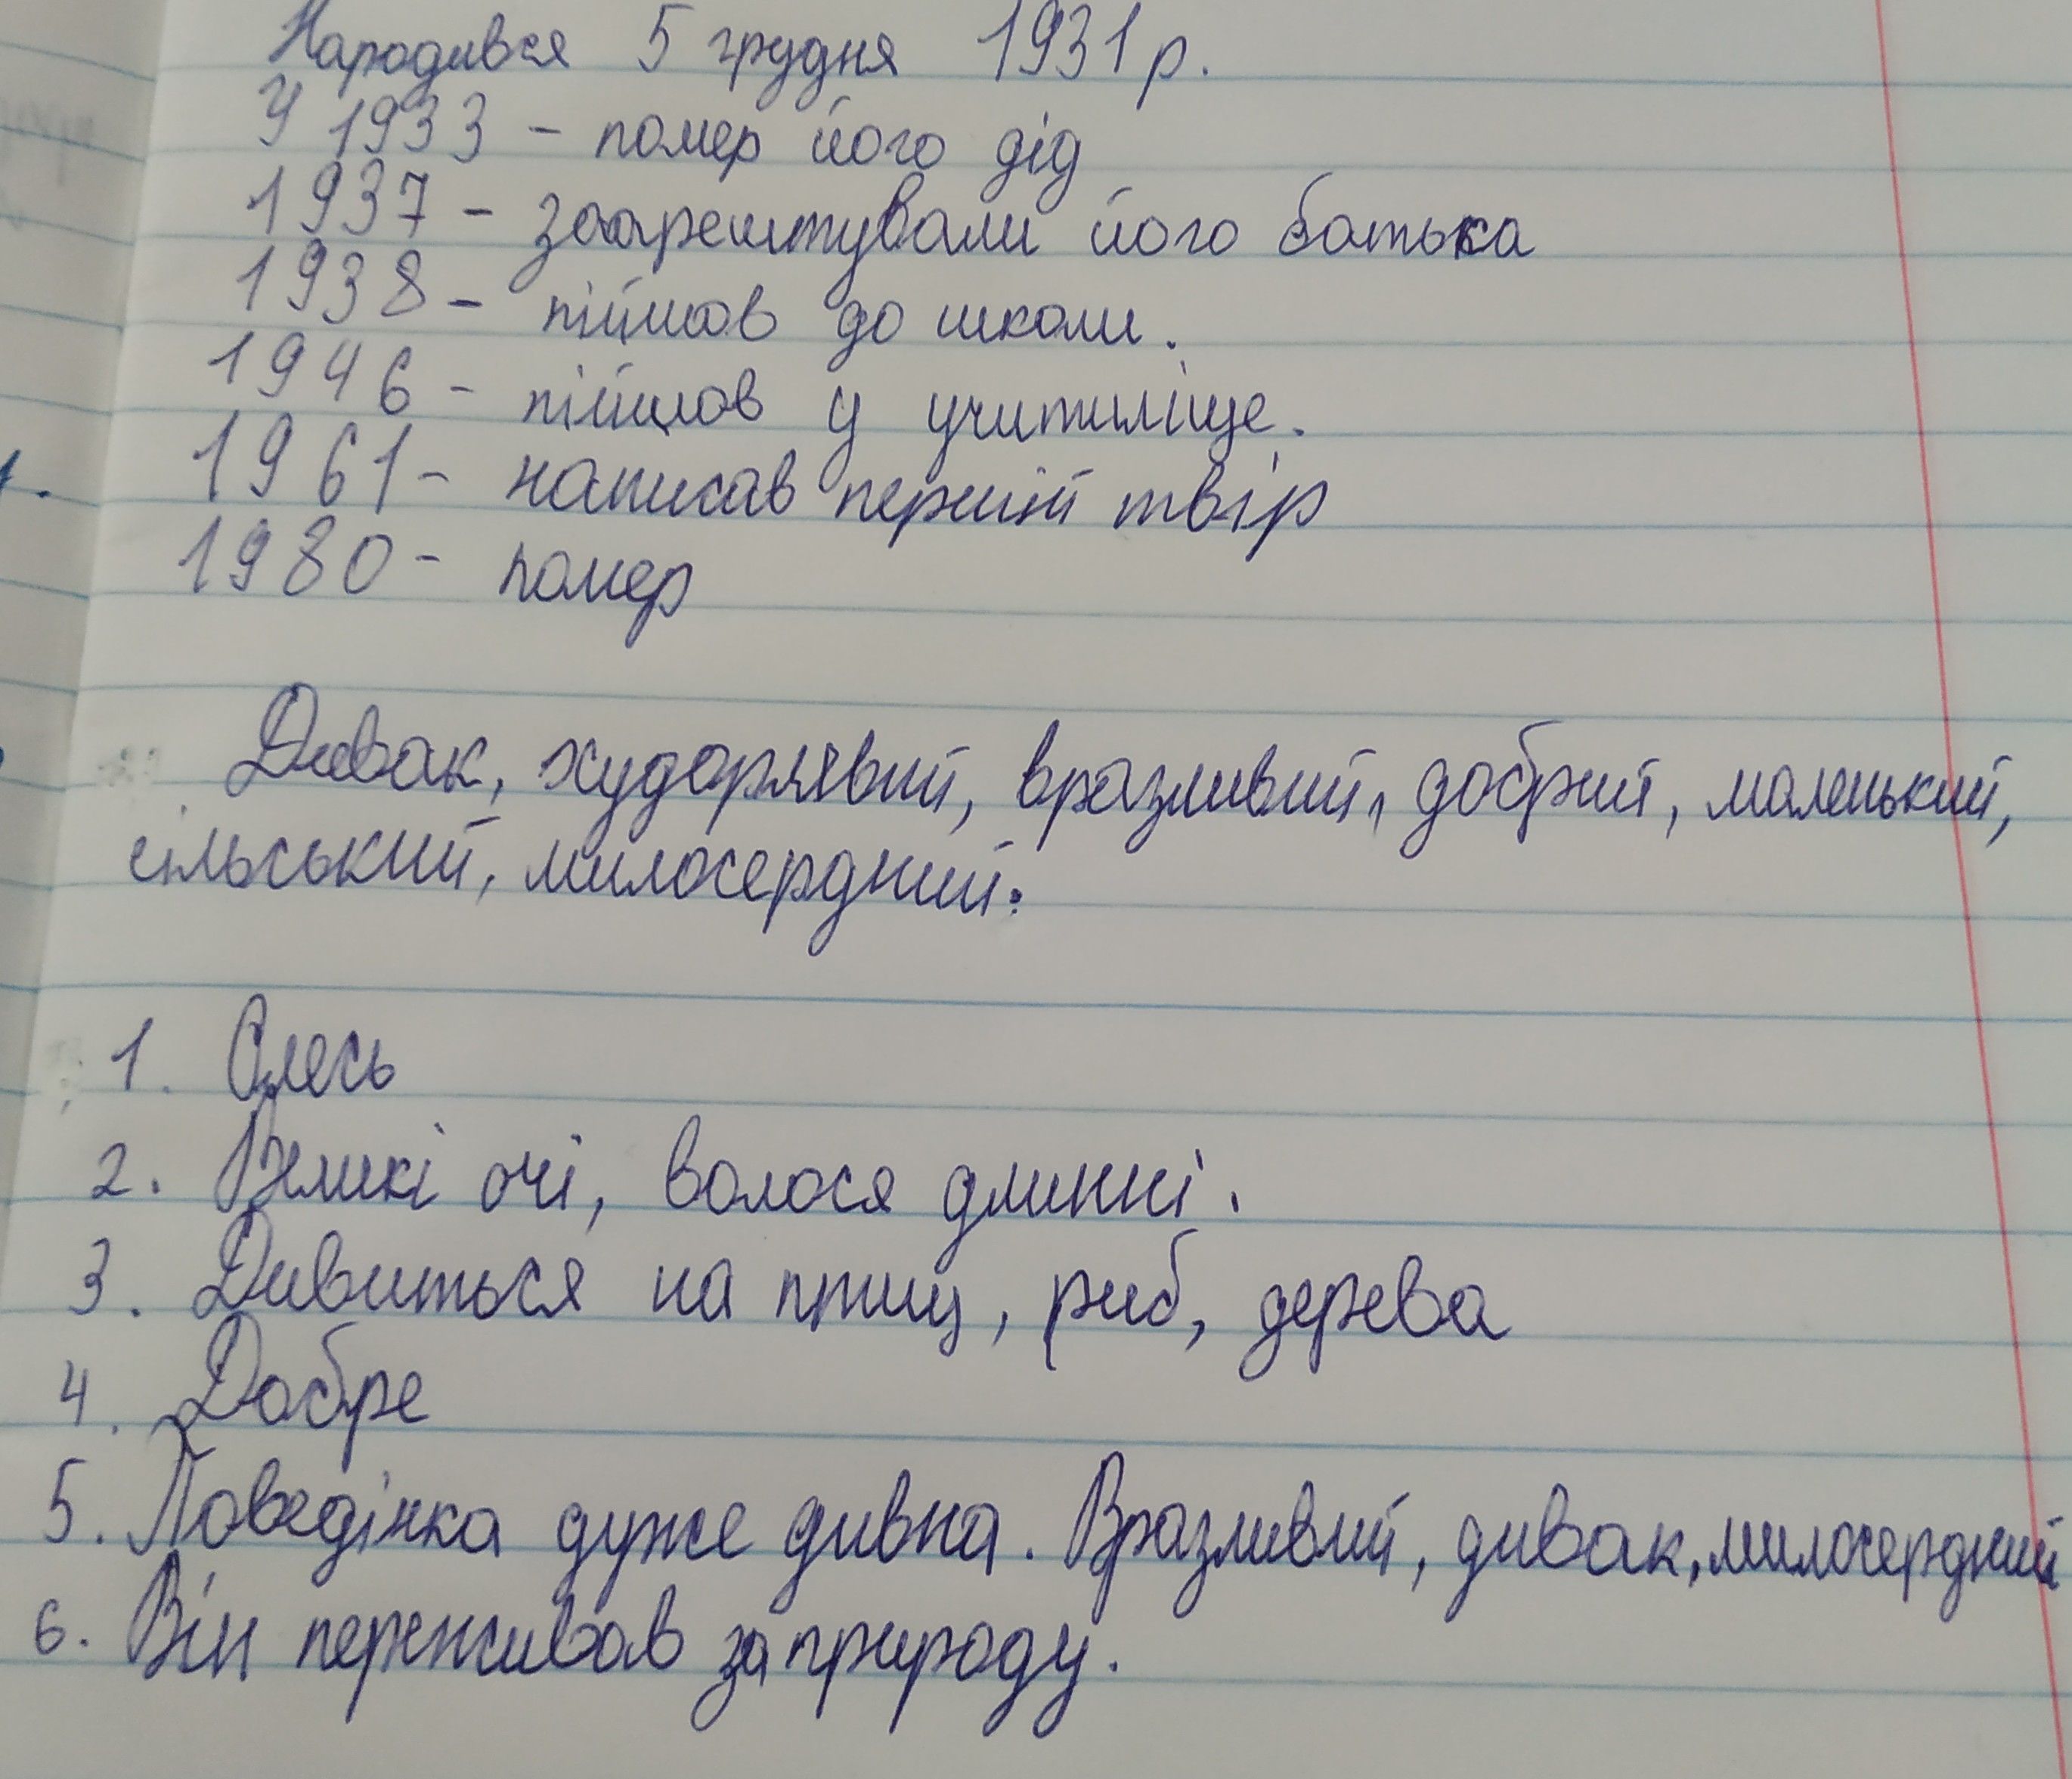 Народився 5 грудня 1931р.
У 1933 - помер його дід
1937 - заарештували його батька
1938 - пійшов до школи.
1946 - пійшов у учитиліще.
1961 - написав перший твір
1980 - помер
Дивак, худорлявий, вразливий, добрий, маленький,
сільський, милосердний.
1. Олесь
2. Великі очі, волося длинні.
3. Дивиться на птиц, риб, дерева
4. Добре
5. Поведінка дуже дивна. Вразливий, дивак, милосердний
6. Він переживав за природу.